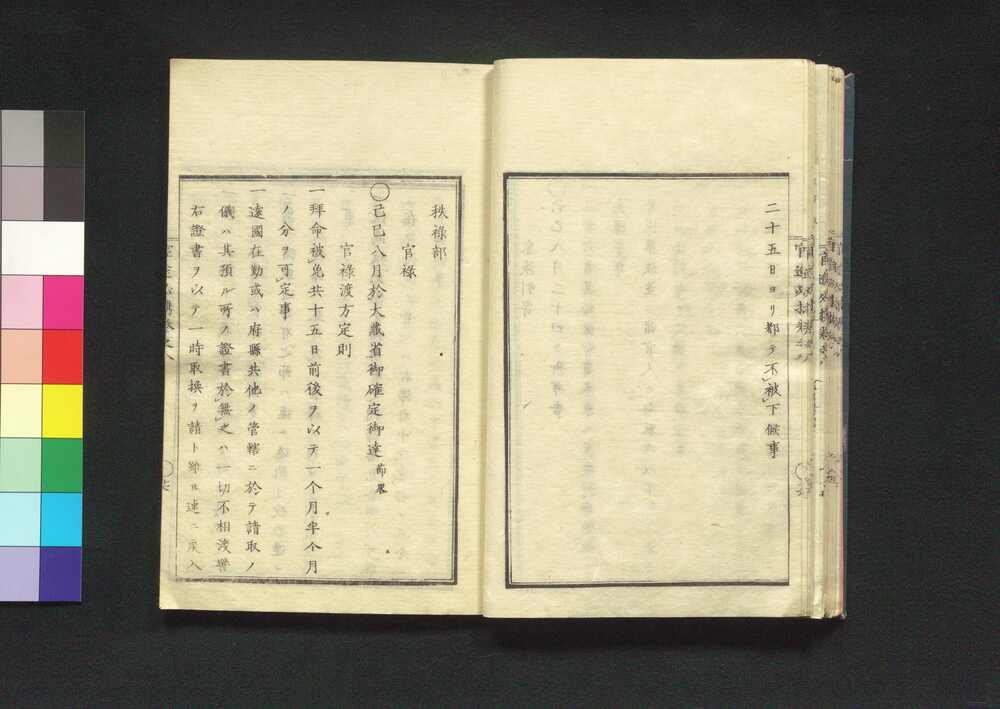 二十五日ヨリ都テ不被下候事
秩祿部
官祿
◯己巳八月於大藏省御確定御達 節畧
官祿渡方定則
一拜命被免共十五日前後ヲ以テ一个月半个月
ノ分ヲ可定事
一遠國在勤或ハ府縣其他ノ管轄ニ於テ請取ノ
儀ハ其預ル所ノ證書於無之ハ一切不相渡譬
右證書ヲ以テ一時取換ヲ請ト雖モ速ニ戾入